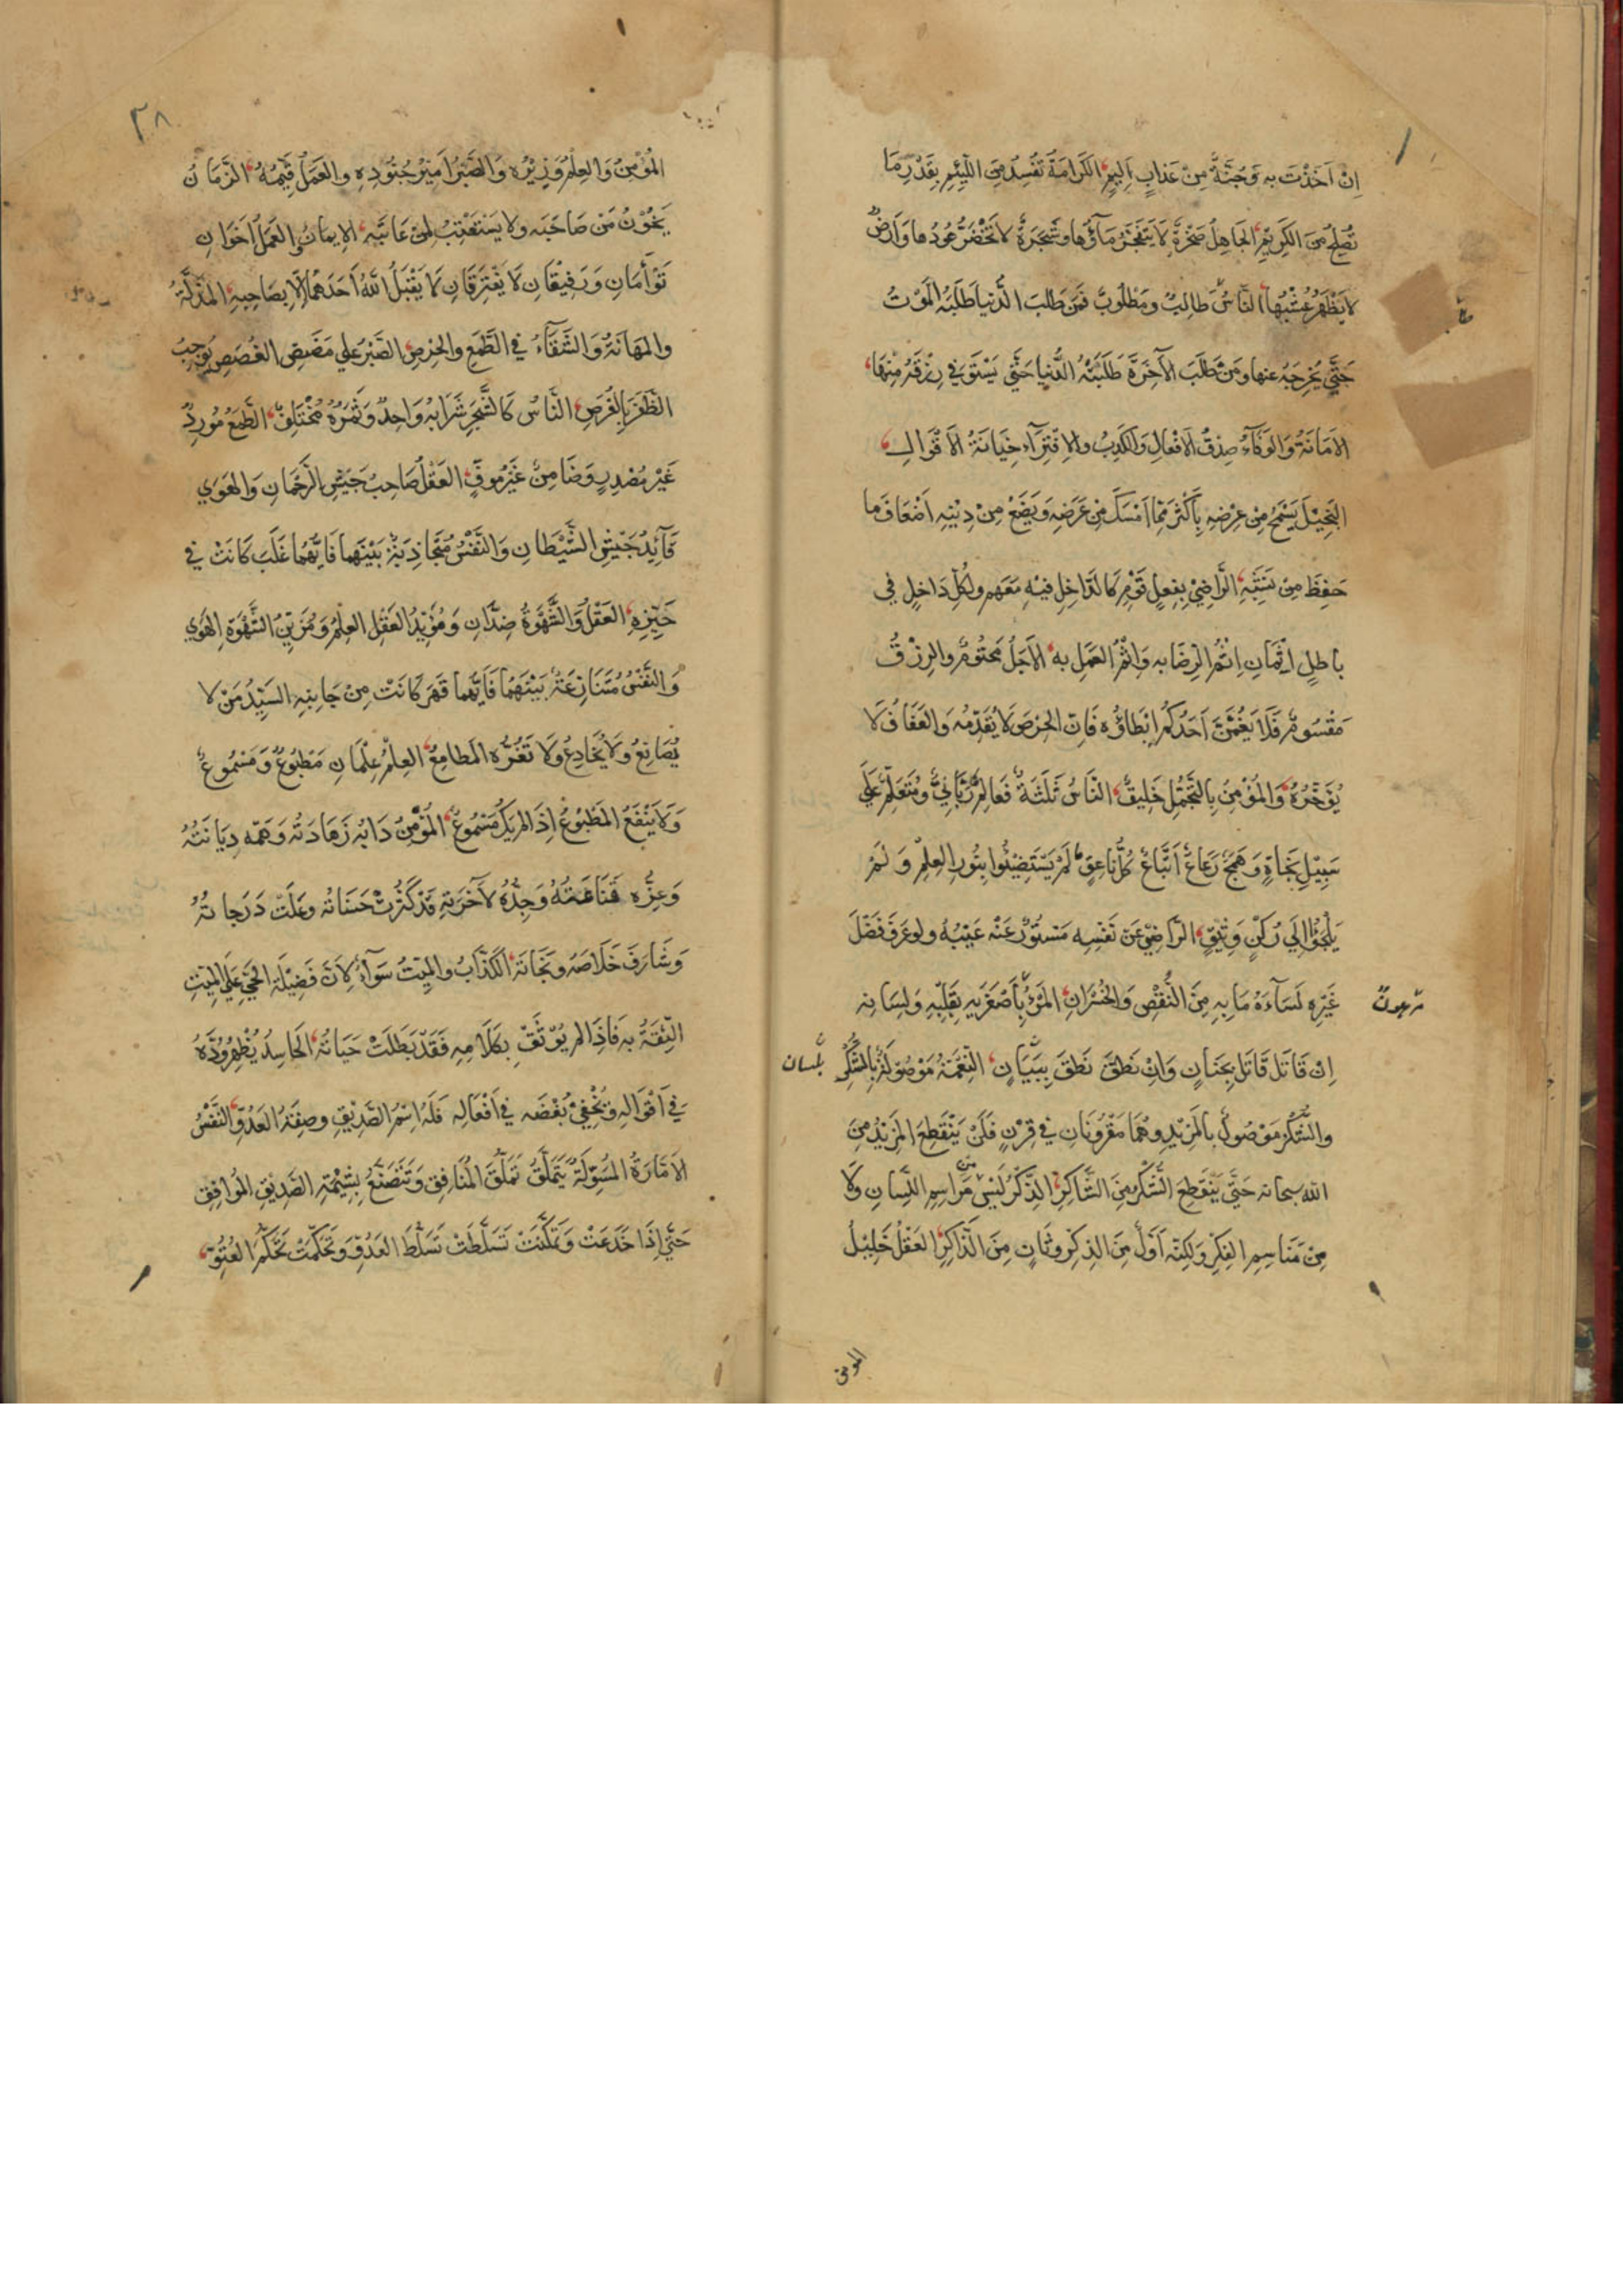 اِنْ اَخَذْتَ بِهِ وَجُنَّةٌ مِنْ عَذابٍ اَليمٍ الكَرامَةُ تُفْسِدُ مِنَ اللَّئيمِ بِقَدْرِ ما
تُصْلِحُ مِنَ الكَريمِ الجاهِلُ صَخْرَةٌ لا يَنْفَجِرُ مآؤُها وشَجَرَةٌ لا يَخْضَرُّ عُودُها وَاَرْضٌ
لا يَظْهَرُ عُشْبُها النّاسُ طالِبٌ ومَطْلُوبٌ فَمَنْ طَلَبَ الدُّنيا طَلَبَهُ المَوْتُ
حَتّي يُخْرِجَهُ عنها ومَنْ طَلَبَ الآخِرَةَ طَلَبَتْهُ الدُّنيا حَتّي يَسْتَوفي رِزْقَهُ مِنْها
الاَمانَةُ وَالوَفآءُ صِدْقُ الاَفْعالِ وَالكَذِبُ والاِفْتِرآءُ خِيانَةُ الاَقْوالِ
البَخيلُ يَسْمَحُ مِنْ عِرْضِهِ بِاَكْثَرَ مِمّا اَمْسَكَ مِنْ عَرَضِهِ وَيُضَيِّعُ مِنْ دِينِهِ اَضْعافَ ما
حَفِظَ مِنْ نَشَبِهِ الرّاضي بِفِعْلِ قَوْمٍ كَالدّاخِلِ فيهِ مَعَهم ولِكُلِّ داخِلٍ في
باطِلٍ اِثْمانِ اِثْمُ الرِّضا بِه وَاِثْمُ العَمَلِ به الاَجَلُ مَحْتُومٌ والرِزْقُ
مَقْسُومٌ فَلا يَغُمَّنَّ اَحَدَكُم اِبْطاؤُه فَاِنَّ الحِرْصَ لا يُقَدِّمُه وَالعَفافُ لا
يُؤَخِّرُهُ وَالمُؤْمِنُ بِالتَّجَمُّلِ خَليقٌ النّاسُ ثَلثَةٌ فَعالِمٌ رَبّانيٌّ ومُتَعَلِّمٌ عَلي
سَبيلِ نَجاةٍ وَهَمَجٌ رَعاعٌ اَتْباعُ كُلِّ ناعِقٍ لَمْ يَسْتَضيئُوا بِنُورِ العِلمِ وَلَمْ
يَلْجَئُوا اِلي رُكْنٍ وَثيقٍ الرّاضي عَنْ نَفْسِه مَسْتُورٌ عَنْهُ عَيْبُهُ ولو عَرَفَ فَضْلَ
غَيْرِهِ لَسآءَهُ ما بِهِ مِنَ النَّقْصِ وَالخُسْرانِ المَرْءُ بِاَصْغَرَيهِ بِقَلْبِهِ وَلِسانِه
اِنْ قاتَلَ قاتَلَ بِجَنانٍ وَاِنْ نَطَقَ نَطَقَ بِبَيانٍ النِّعْمَةُ مَوْصُولَةٌ بِالشُّكْرِ
بلسان
والشُّكْرُ مَوْصُولٌ بالمَزيدِ وهُما مَقْرُونانِ في قَرَنٍ فَلَنْ يَنْقَطِعَ المَزيدُ مِنَ
الله سبحانه حَتّي يَنْقَطِعَ الشُّكْرُ مِنَ الشّاكِرِ الذِّكْرُ لَيْسَ مِن مَراسِمِ اللِّسانِ وَلا
مِنْ مَناسِمِ الفِكْرِ وَلكِنَّه اَوَّلٌ مِنَ الذِكرِ وثانٍ مِنَ الذّاكِرِ العَقْلُ خَليلُ
٣٨
المُؤْمِنِ وَالعِلْمُ وَزيرُه وَالصَّبْرُ اَميرُ جُنُودِهِ والعَمَلُ قَيِّمُهُ الزَّمانُ
يَخُونُ مَنْ صاحَبَه ولا يَسْتَعْتِبُ لِمَنْ عاتَبَه الاِيمانُ والعَمَلُ اَخَوانِ
تَوْأَمانِ وَرَفيقانِ لا يَفْتَرِقانِ لا يَقْبَلُ اللهُ اَحَدَهُما اِلّا بِصاحِبِهِ المَذَلَّةُ
والمَهانَةُ وَالشَّقآءُ في الطَّمَعِ والحِرْصِ الصَّبْرُ عَلي مَضَضِ الغُصَصِ يُوجِبُ
الظَّفَرَ بِالفُرَصِ النّاسُ كَالشَّجَرِ شَرابُهُ واحِدٌ وَثَمَرُهُ مُخْتَلِفٌ الطَّمَعُ مُورِدٌ
غَيْرُ مُصْدِرٍ وَضامِنٌ غَيْرُ مُوفٍ العَقْلُ صاحِبُ جَيْشِ الرَّحْمانِ وَالهَوَي
قآئِدُ جَيْشِ الشَّيْطانِ وَالنَّفْسُ مُتَجاذِبَةٌ بَيْنَهما فَاَيُّهُما غَلَبَ كانَتْ في
حَيِّزِهِ العَقْلُ وَالشَّهْوَةُ ضِدّانِ وَمُؤَيِّدُ العَقْلِ العِلْمُ وَمُزَيِّنُ الشَّهْوَةِ الهَوي
وَالنَّفْسُ مُتَنازِعَةٌ بَيْنَهُما فَاَيُّهُما قَهَرَ كانَتْ مِنْ جانِبِهِ السَيِّدُ مَنْ لا
يُصانِعُ وَلا يُخادِعُ ولا تَغُرُّه المَطامِعُ العِلْمُ عِلْمانِ مَطْبُوعٌ وَمَسْمُوعٌ
وَلا يَنْفَعُ المَطْبُوعُ اِذا لم يَكُ مَسْمُوعٌ المُؤْمِنُ دَابُه زَهادَتُه وَهَمُّه دِيانَتُهُ
وَعِزُّه قَناعَتُهُ وَجِدُّهُ لآخِرَتِهِ قَدْ كَثُرَتْ حَسَناتُه وعَلَتْ دَرَجاتُهُ
وَشارَفَ خَلاصَهُ ونَجاتَهُ الكَذّابُ والمَيِّتُ سَوآءٌ لِاَنَّ فَضيلَةَ الحَيِّ عَلَي المَيِّتِ
الثِّقَةُ بِه فَاِذا لم يُوثَقْ بِكَلامِهِ فَقَدْ بَطَلَتْ حَياتُهُ الحاسِدُ يُظْهِرُ وُدَّهُ
في اَقْوالِهِ ويُخْفي بُغْضَه في اَفْعالِه فَلَهُ اسْمُ الصَّديقِ وصِفَةُ العَدُوِّ النَّفْسُ
الاَمّارَةُ المُسَوِّلَةُ تَتَمَلَّقُ تَمَلُّقَ المُنافِقِ وَتَتَصَنَّعُ بِشيمَةِ الصَّديقِ المُوافِقِ
حَتّي اِذا خَدَعَتْ وَتَمَكَّنَتْ تَسَلَّطَتْ تَسَلُّطَ العَدُوِّ وَتَحَكَّمَتْ تَحَكُّمَ العُتُوِّ